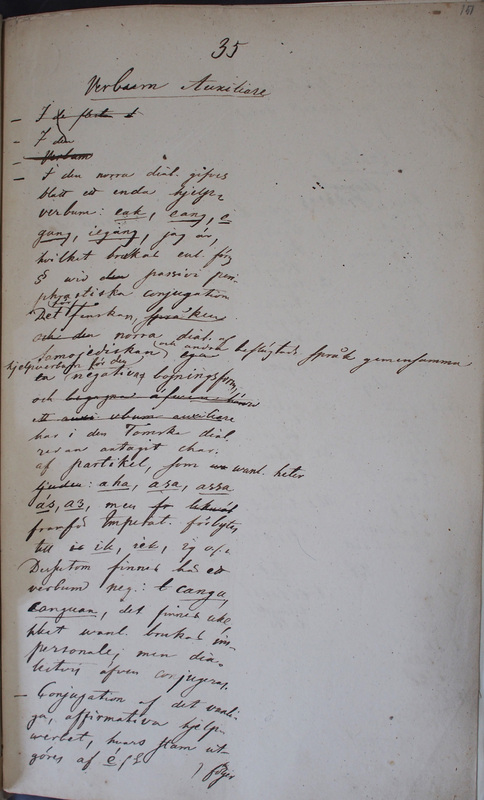 151
35
Verbum Auxiliare
– I de flesta d
– I den
Verbum
– I den norra dial. gifves
blott ett enda hjelp-
verbum: eak, eang, ei
gang, iegäng, jag är,
hvilket brukas enl. förg
§ wid den passivi peri-
phrastiska conjugation
Det finskan, språken
och den norra dial. af
samojediskan och andra beslägtade språk gemensamma
hjelpverbum för den
negativa böjningsform,
och begagnar äfven
ett auxi. vbum auxiliare
har i den Tomska dial.
redan antagit char.
af partikel, som want. heter
ljuder: aha, asa, assa
ás, as, men
framför Imperat. förbytes
till ik, iek, ig o.s.v.
Dessutom finnes här ett
verbum neg.: canga,
canguan, det finnes icke
hket want. brukas im-
personale, men dia-
lectvis äfven conjugeras.
– Conjugation af det vanli-
ga, affirmativa hjelp-
verbet, hvars stam ut-
göres af é, §